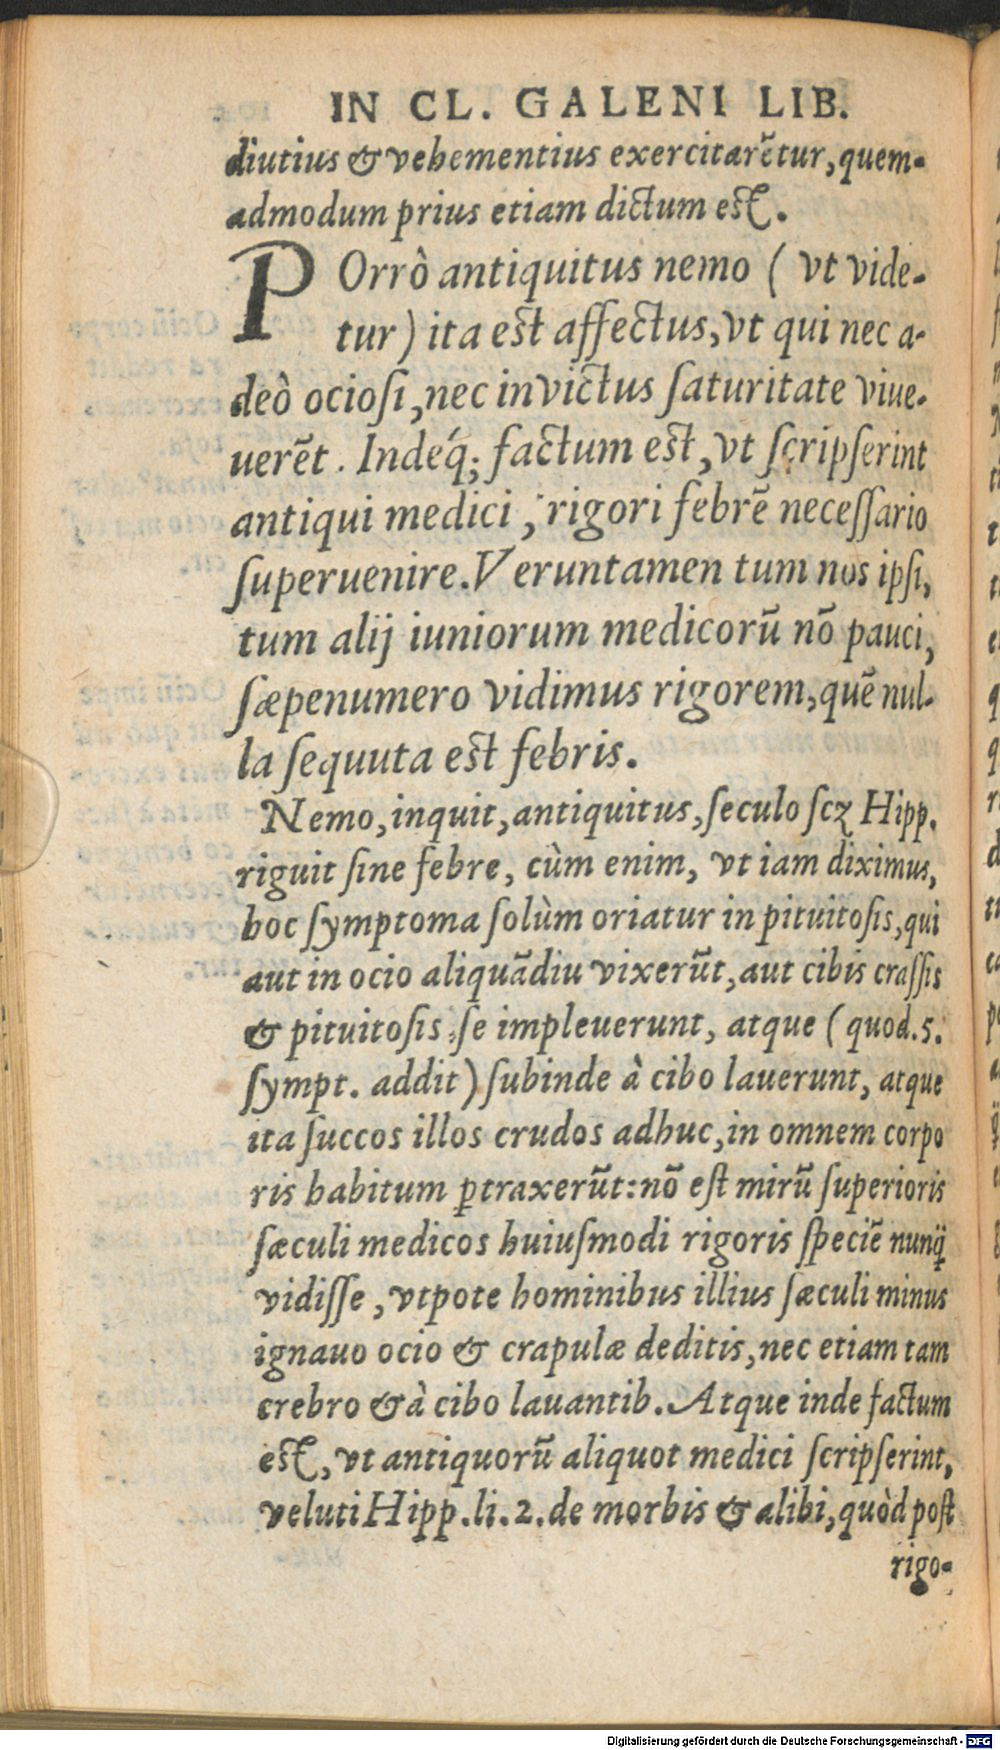 IN CL. GALENI LIB.
diutius & vehementius exercitarētur, quem-
admodum prius etiam dictum est.
POrrò antiquitus nemo ( vt vide-
tur ) ita est affectus, vt qui nec a-
deò ociosi, nec invictus saturitate viue-
uerēt. Indéq; factum est, vt scripserint
antiqui medici, rigori febrē necessario
superuenire. Veruntamen tum nos ipsi,
tum alij iuniorum medicorū nō pauci,
sæpenumero vidimus rigorem, quē nul-
la sequuta est febris.
Nemo, inquit, antiquitus, seculo scꝫ Hipp.
riguit sine febre, cùm enim, vt iam diximus,
hoc symptoma solùm oriatur in pituitosis, qui
aut in ocio aliquādiu vixerūt, aut cibis crassis
& pituitosis se impleuerunt, atque ( quod. 5.
sympt. addit ) subinde à cibo lauerunt, atque
ita succos illos crudos adhuc, in omnem corpo
ris habitum ꝑtraxerūt: nō est mirū superioris
sæculi medicos huiusmodi rigoris speciē nunq̄
vidisse, vtpote hominibus illius sæculi minus
ignauo ocio & crapulæ deditis, nec etiam tam
crebro & à cibo lauantib. Atque inde factum
est, vt antiquorū aliquot medici scripserint,
veluti Hipp. li. 2. de morbis & alibi, quòd post
rigo-
Digitalisierung gefördert durch die Deutsche Forschungsgemeinschaft - DFG